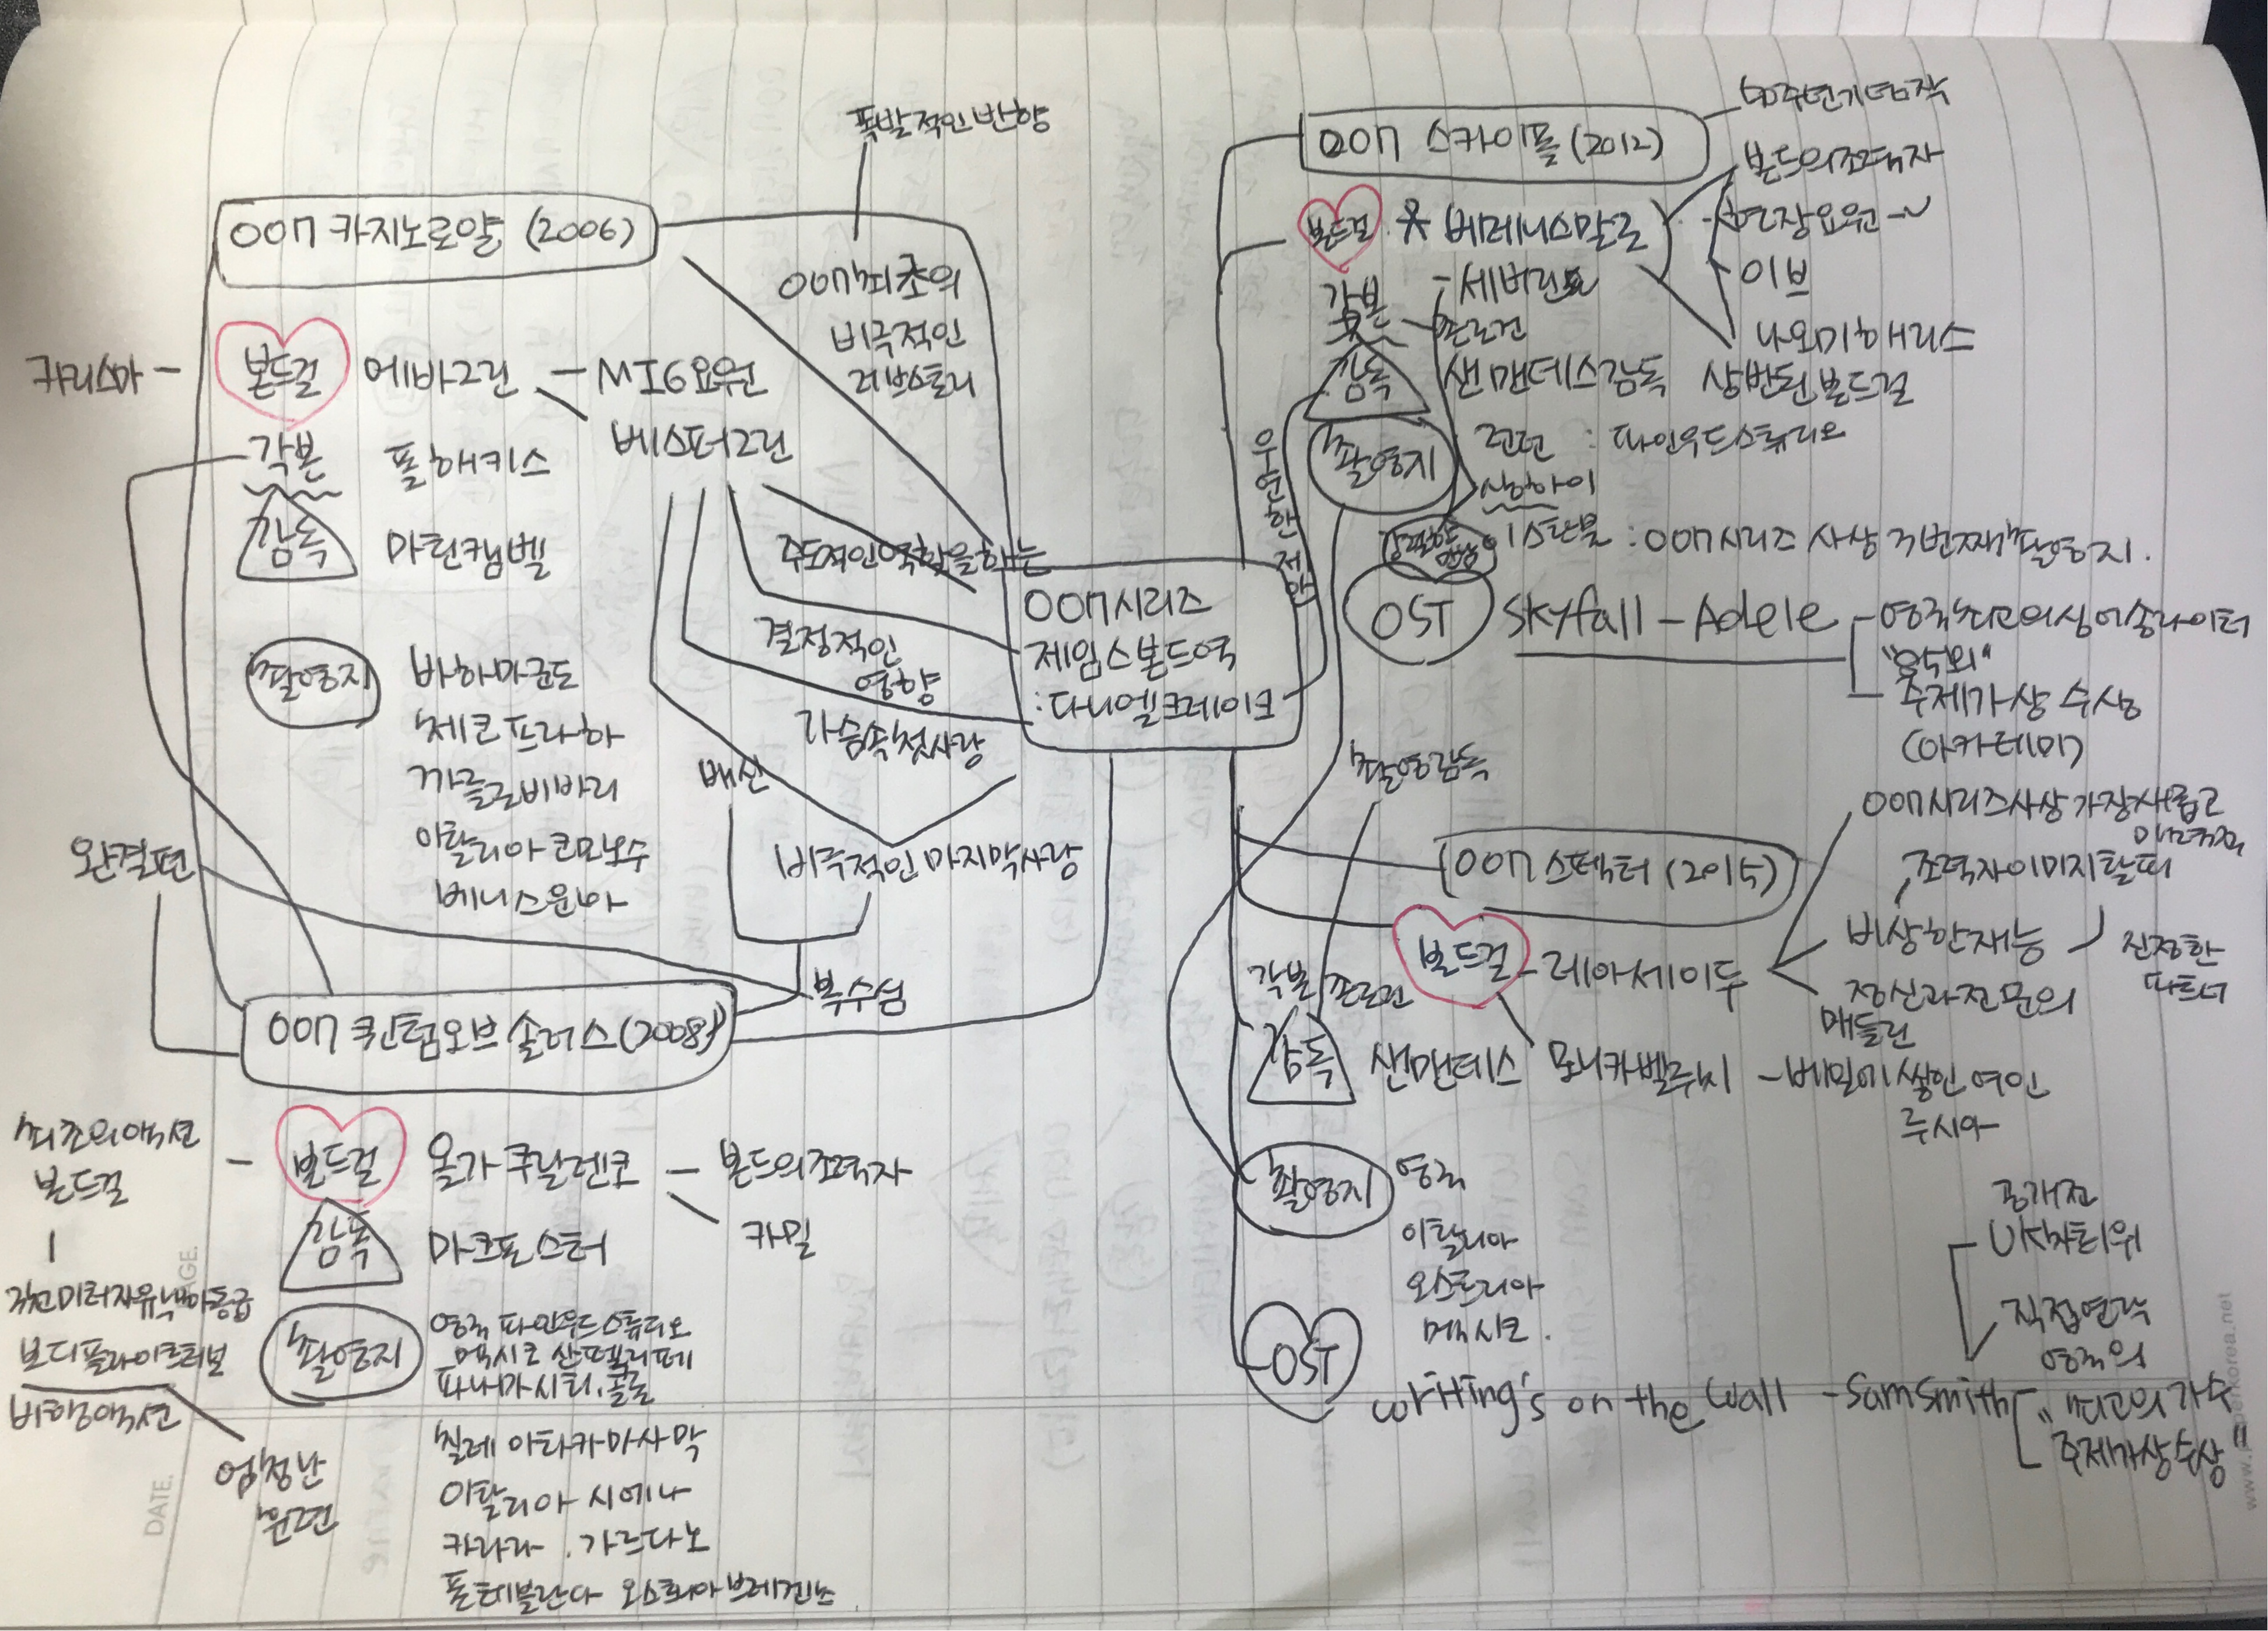 폭발적인반향
007 카지노로얄 (2006)
007최초의
비극적인
러브스토리
카리스마 -
본드걸 에바그린 - MI6요원
베스퍼그린
각본 폴해키스
감독 마틴캠벨
주도적인역할을하는
결정적인
영향
가슴속첫사랑
배신
비극적인 마지막사랑
복수심
촬영지 바하마군도
체코 프라하
까를로비바리
이탈리아 코모호수
베니스운하
007시리즈
제임스본드역
:다니엘크레이크
완결편
007 퀀텀오브솔러스 (2008)
최초의액션
본드걸
- 본드걸 올가쿠릴렌코 - 본드의조력자
카밀
감독 마크포스터
보디플라이트터널
비행액션
엄청난
훈련
촬영지 영국 파인우드스튜디오
멕시코 산펠리페
파나마시티, 콜론
칠레 아타카마사막
이탈리아 시에나
카라라, 가르다노
폴테블란다 오스트리아 브레겐츠
007 스카이폴 (2012)
50주년기념작
본드걸 베레니스말로
-세버린
본드의조력자
-현장요원~
이브
나오미해리스
상반된본드걸
각본 - 존로건
감독 샘맨데스감독
우연한 제안
촬영지 런던 : 파인우드스튜디오
상하이
이스탄불 : 007시리즈 사상 3번째 촬영지.
OST Skyfall - Adele
영국최고의싱어송라이터
주제가상 수상
(아카데미)
촬영감독
007 스펙터 (2015)
본드걸 - 레아세이두
007시리즈사상 가장새롭고
매력적
조력자이미지탈피
비상한재능
진정한
파트너
정신과전문의
매들린
각본 존로건
감독 샘맨데스
모니카벨루치 - 비밀에쌓인여인
루시아
촬영지 영국
이탈리아
오스트리아
멕시코.
OST writing's on the wall - Sam Smith
공개전
UK차트1위
직접연락
영국의
"최고의가수"
주제가상수상
DATE.
PAGE.